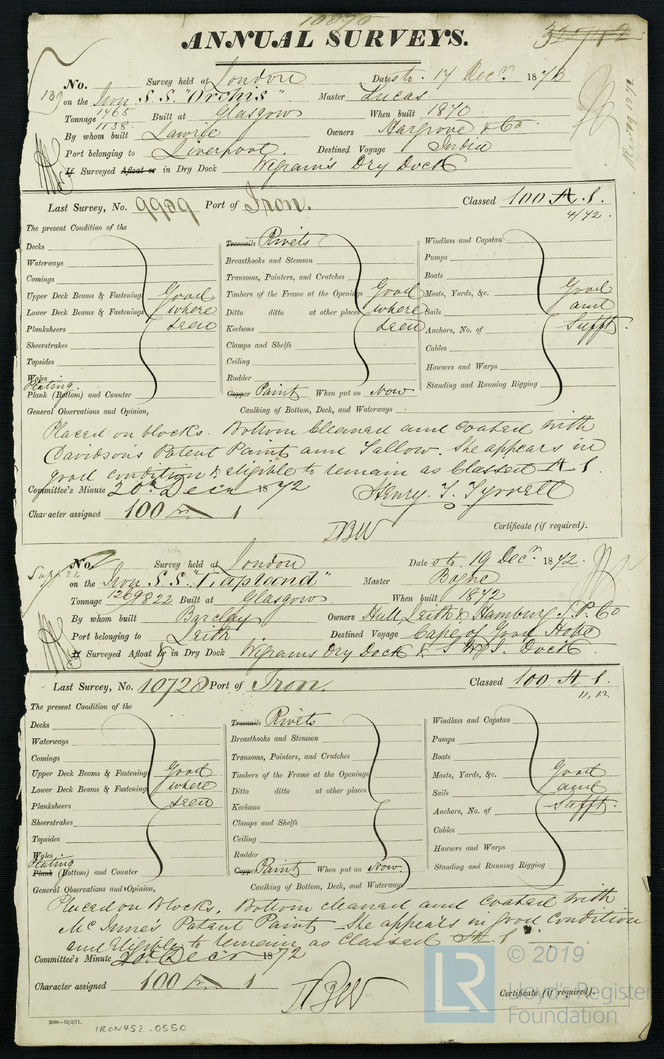 10890
ANNUAL SURVEYS.
No. Survey held at London Date sto. 17 Decr. 1872
139 on the Iron S.S. "Orchis" Master Lucas
Tonnage 1465 1138 Built at Glasgow When built 1870
By whom built Lawrie Owners Hargrove & Co
Port belonging to Liverpool Destined Voyage India
If Surveyed Afloat or in Dry Dock Wigram's Dry Dock
Last Survey, No. 9909 Port of Iron. Classed 100 A 1.
4/72.
The present Condition of the
Decks
Waterways
Comings
Upper Deck Beams & Fastening Good
Lower Deck Beams & Fastening where
Planksheers seen
Sheerstrakes
Topsides
Wales
Plating
Plank (Bottom) and Counter
Treenails Rivets
Breasthooks and Stemson
Transoms, Pointers, and Crutches
Timbers of the Frame at the Openings Good
Ditto ditto at other places where
Keelsons seen
Clamps and Shelfs
Ceiling
Rudder
Copper Paint When put on Now
Caulking of Bottom, Deck, and Waterways
Windlass and Capstan
Pumps
Boats
Masts, Yards, &c. Good
Sails and
Anchors, No. of Sufft.
Cables
Hawsers and Warps
Standing and Running Rigging
General Observations and Opinion,
Placed on blocks. Bottom cleaned and coated with
Davidson's Patent Paint and Tallow. She appears in
good condition & eligible to remain as Classed A 1.
Committee's Minute 20th Decr 1872 Henry. T. Tyrrell
Character assigned 100 A 1
Certificate (if required).
No. Survey held at London Date sto. 19 Decr. 1872.
on the Iron S.S. "Lapland" Master
Tonnage 1269 822 Built at Glasgow When built 1872
By whom built Barclay Owners Hull, Leith & Hamburg S.P. Co
Port belonging to Leith Destined Voyage Cape of Good Hope
If Surveyed Afloat or in Dry Dock Wigrams Dry Dock & S.W.I. Dock.
Last Survey, No. 10728 Port of Iron. Classed 100 A 1.
11, 12.
The present Condition of the
Decks
Waterways
Comings
Upper Deck Beams & Fastening Good
Lower Deck Beams & Fastening where
Planksheers seen
Sheerstrakes
Topsides
Wales
Plating
Plank (Bottom) and Counter
Treenails Rivets
Breasthooks and Stemson
Transoms, Pointers, and Crutches
Timbers of the Frame at the Openings
Ditto ditto at other places
Keelsons
Clamps and Shelfs
Ceiling
Rudder
Copper Paint When put on Now.
Caulking of Bottom, Deck, and Waterways
Windlass and Capstan
Pumps
Boats
Masts, Yards, &c. Good
Sails and
Anchors, No. of Sufft.
Cables
Hawsers and Warps
Standing and Running Rigging
General Observations and Opinion,
Placed on Blocks. Bottom cleaned and Coated with
McInnes Patent Paint She appears in good Condition
and Eligible to remain as Classed A 1
Committee's Minute 20th Decr 1872
Character assigned 100 A 1
Certificate (if required).
2000—13/2/71.
IRON452-0550
LR
© 2019
Lloyd's Register
Foundation